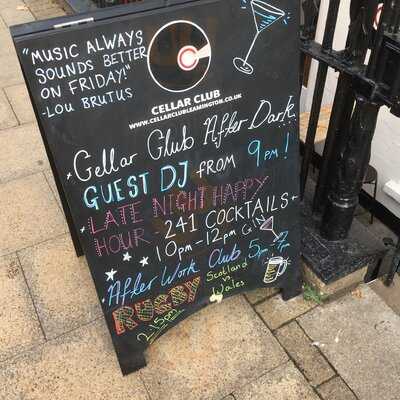 "MUSIC ALWAYS
SOUNDS BETTER
ON FRIDAY!"
- LOU BRUTUS
CELLAR CLUB
WWW.CELLARCLUBLEAMINGTON.CO.UK
Cellar Club After Dark
GUEST DJ FROM 9PM!
LATE NIGHT HAPPY
HOUR - 241 COCKTAILS
10pm-12pm
After Work Club 5-7
RUGBY Scotland
vs.
Wales
2:15pm